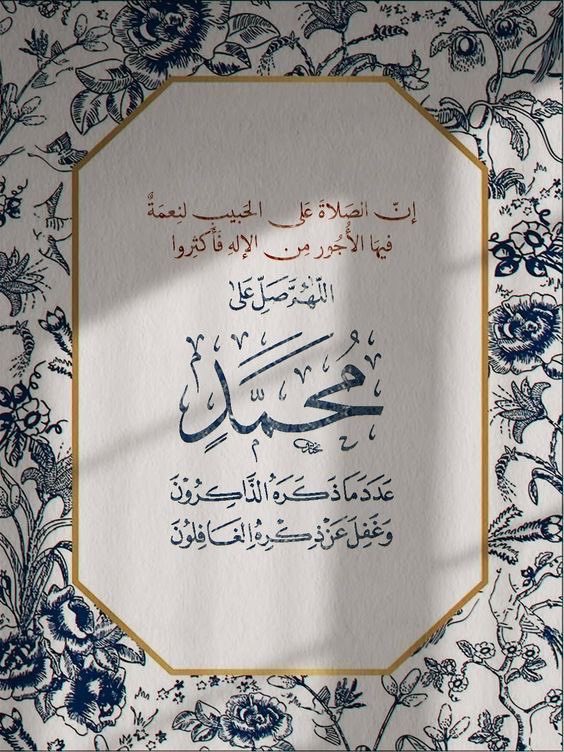 إنّ الصَلاةَ عَلى الحَبيبِ لنِعمَةٌ
فيهَا الأُجُور مِن الإلهِ فَأَكثِروا
اللَّهُمَّ صَلِّ عَلىٰ
مُحَمَّدٍ
عَدَدَ مَا ذَكَرَهُ الذَّاكِرُونَ
وَغَفِلَ عَنْ ذِكْرِهِ الْغَافِلُونَ